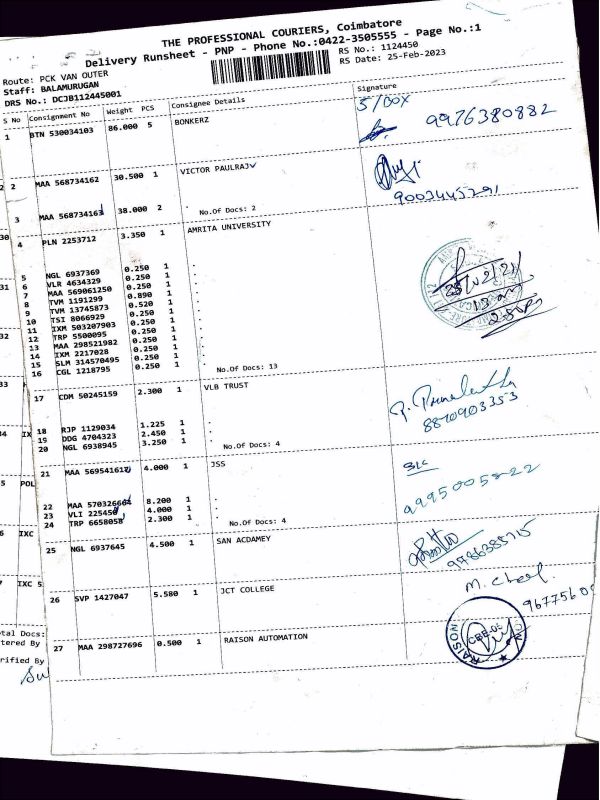 THE PROFESSIONAL COURIERS, Coimbatore
Delivery Runsheet - PNP - Phone No.:0422-3505555 - Page No.:1
Route: PCK VAN OUTER
RS No.: 1124450
Staff: BALAMURUGAN
RS Date: 25-Feb-2023
DRS No.: DCJB112445001
S No Consignment No Weight PCS Consignee Details Signature
1 BTN 530034103 86.000 5 BONKERZ 5/BOX 9976380882
2 MAA 568734162 30.500 1 VICTOR PAULRAJ
3 MAA 568734163 38.000 2 No.Of Docs: 2 9003445291
4 PLN 2253712 3.350 1 AMRITA UNIVERSITY
5 NGL 6937369 0.250 1
6 VLR 4634329 0.250 1
7 MAA 569061250 0.250 1
8 TVM 1191299 0.890 1
9 TVM 13745873 0.520 1
10 TSI 8066929 0.250 1
11 IXM 503207903 0.250 1
12 TRP 5500095 0.250 1
13 MAA 298521982 0.250 1
14 IXM 2217028 0.250 1
15 SLM 314570495 0.250 1
16 CGL 1218795 0.250 1 No.Of Docs: 13
17 CDM 50245159 2.300 1 VLB TRUST
18 RJP 1129034 1.225 1
19 DDG 4704323 2.450 1
20 NGL 6938945 3.250 1 No.Of Docs: 4
8870903353
21 MAA 569541617 4.000 1 JSS
22 MAA 570326604 8.200 1
23 VLI 225450 4.000 1
24 TRP 6658058 2.300 1 No.Of Docs: 4
9995005822
25 NGL 6937645 4.500 1 SAN ACDAMEY
26 SVP 1427047 5.580 1 JCT COLLEGE
27 MAA 298727696 0.500 1 RAISON AUTOMATION
RAISON